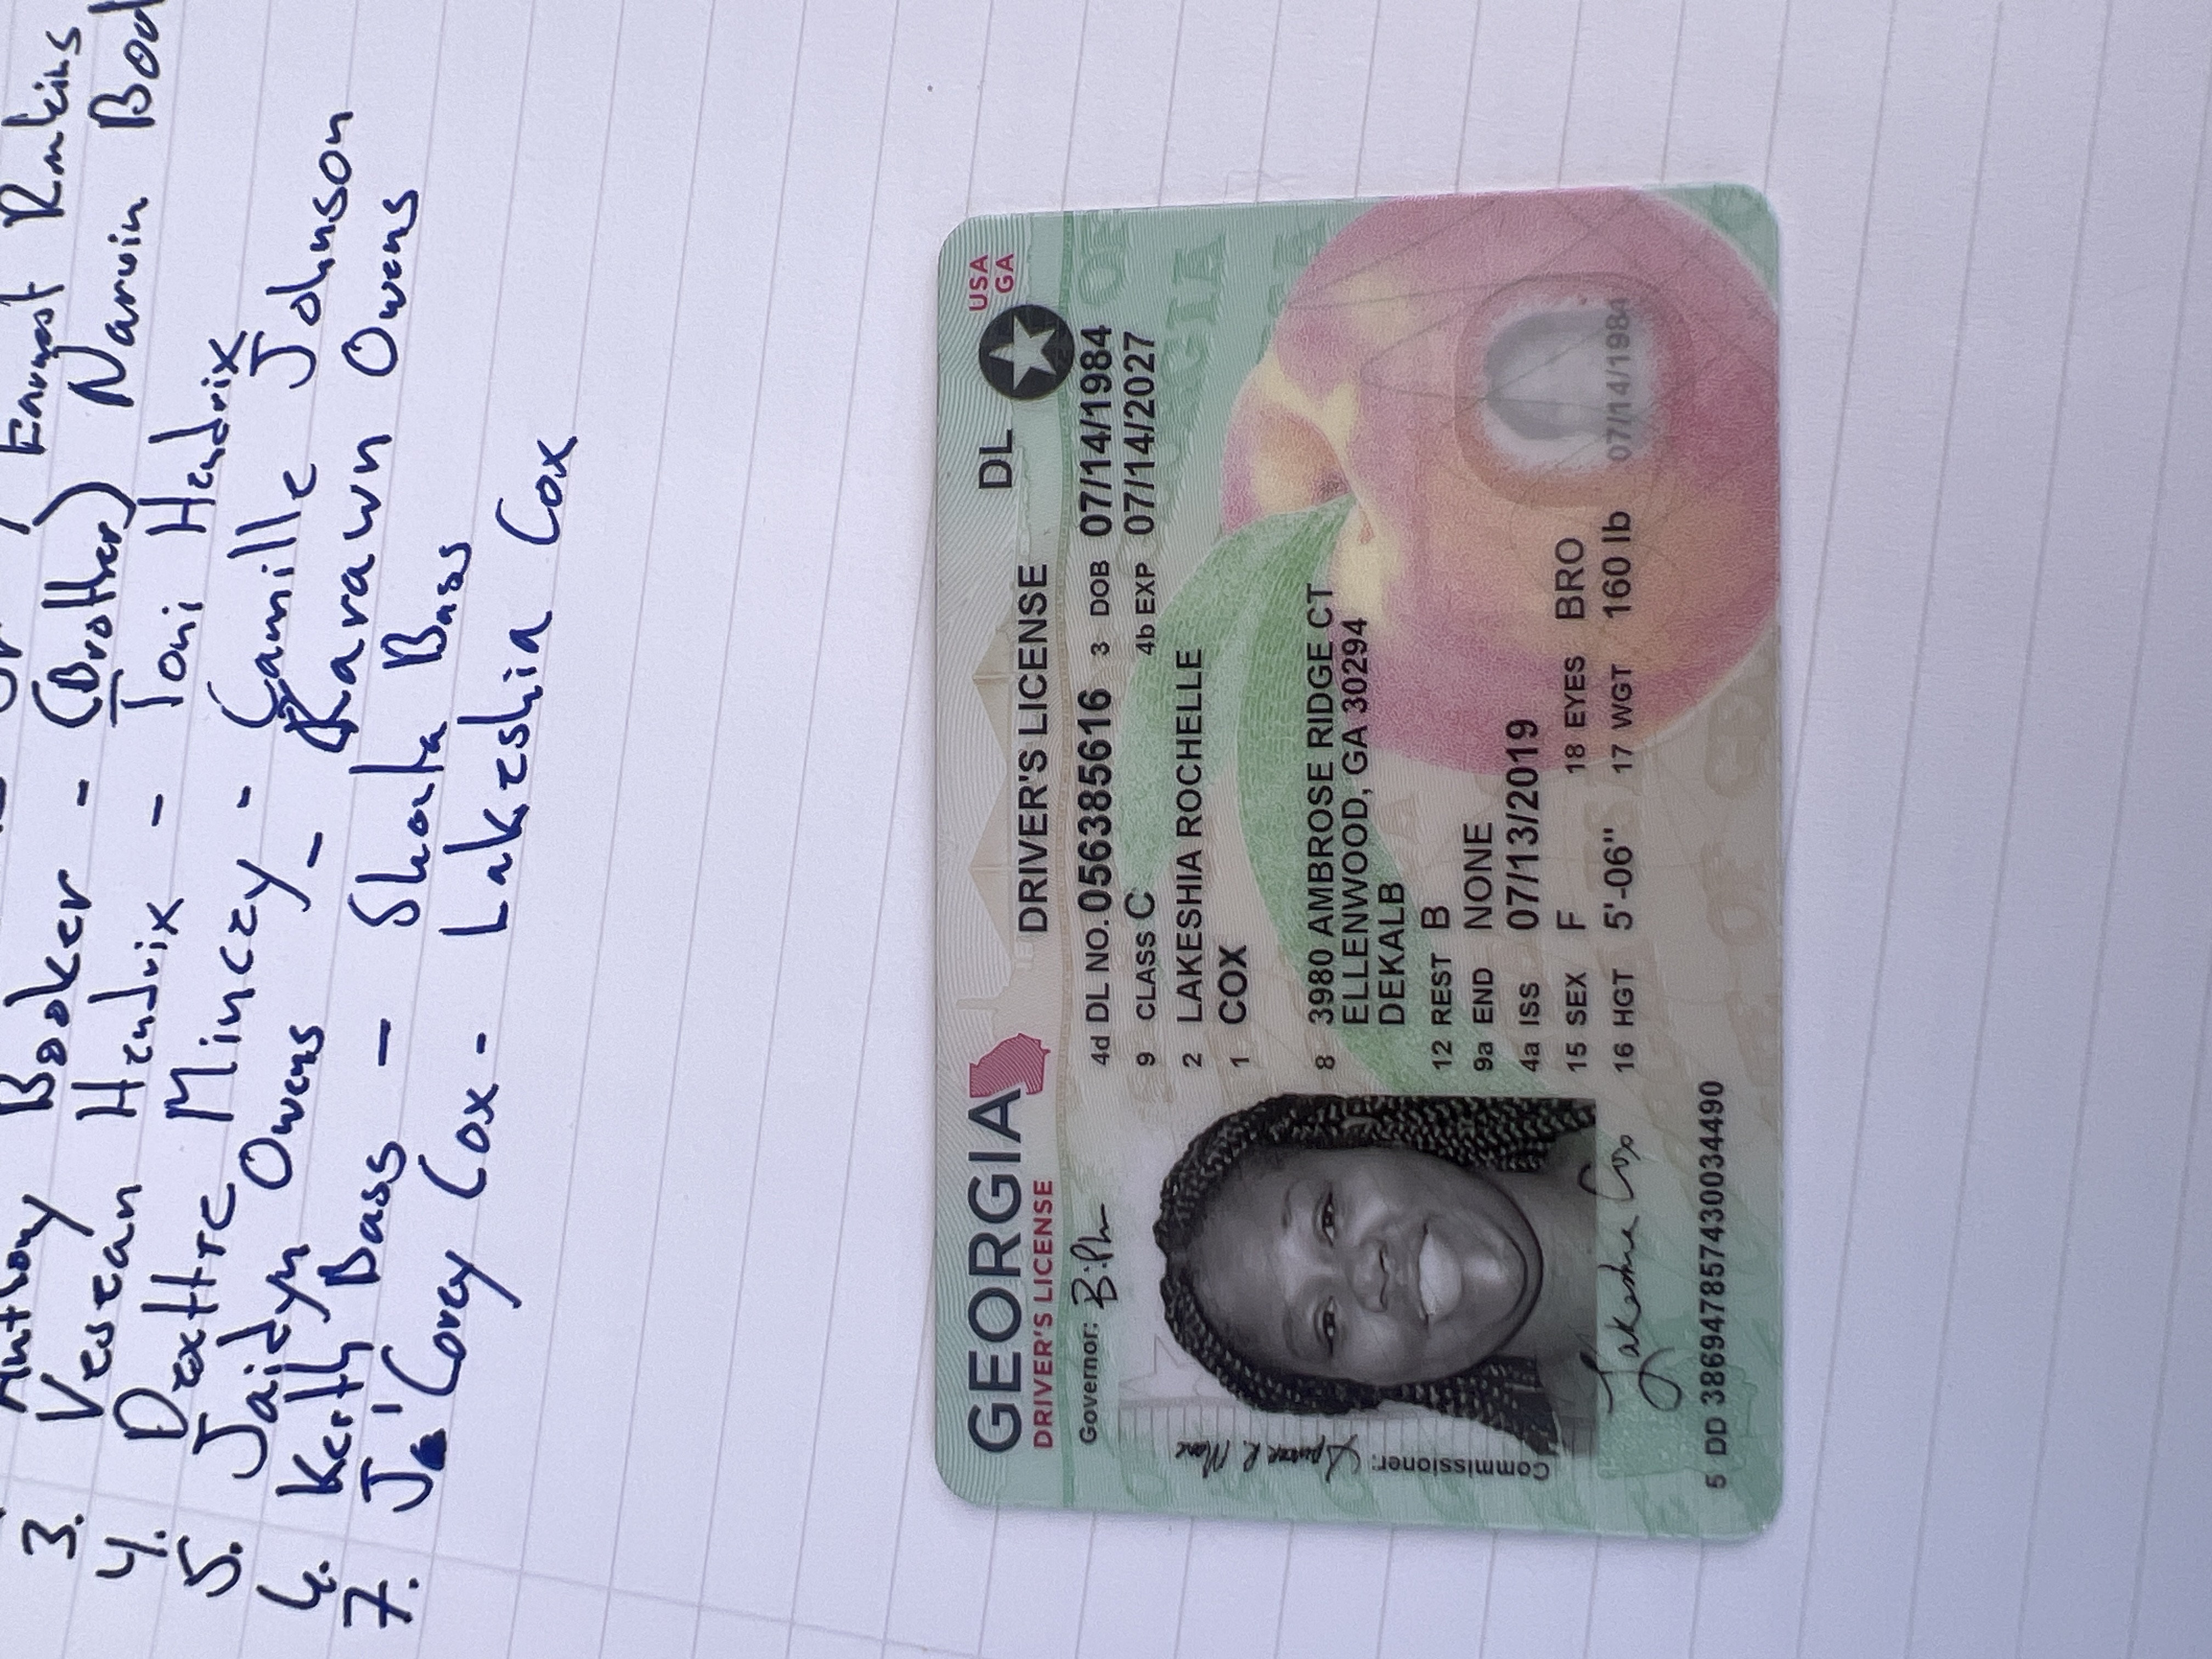 Earnest Rankins
Anthony Booker - (Brother)
3. Vesean Hendrix - Toni Hendrix
4. Dexttre Mincey - Camille Johnson
5. Jaidyn Owens - Ravawn Owens
6. Keith Bass - Shenta Bass
7. Ja'Corey Cox - Lakeshia Cox
GEORGIA DRIVER'S LICENSE DL USA
DRIVER'S LICENSE GA
Governor:
Commissioner:
4d DL NO. 056385616 3 DOB 07/14/1984
9 CLASS C 4b EXP 07/14/2027
2 LAKESHIA ROCHELLE
1 COX
8 3980 AMBROSE RIDGE CT
ELLENWOOD, GA 30294
DEKALB
12 REST B
9a END NONE
4a ISS 07/13/2019
15 SEX F 18 EYES BRO
16 HGT 5'-06" 17 WGT 160 lb
07/14/1984
Lakeshia Cox
5 DD 386947857430034490